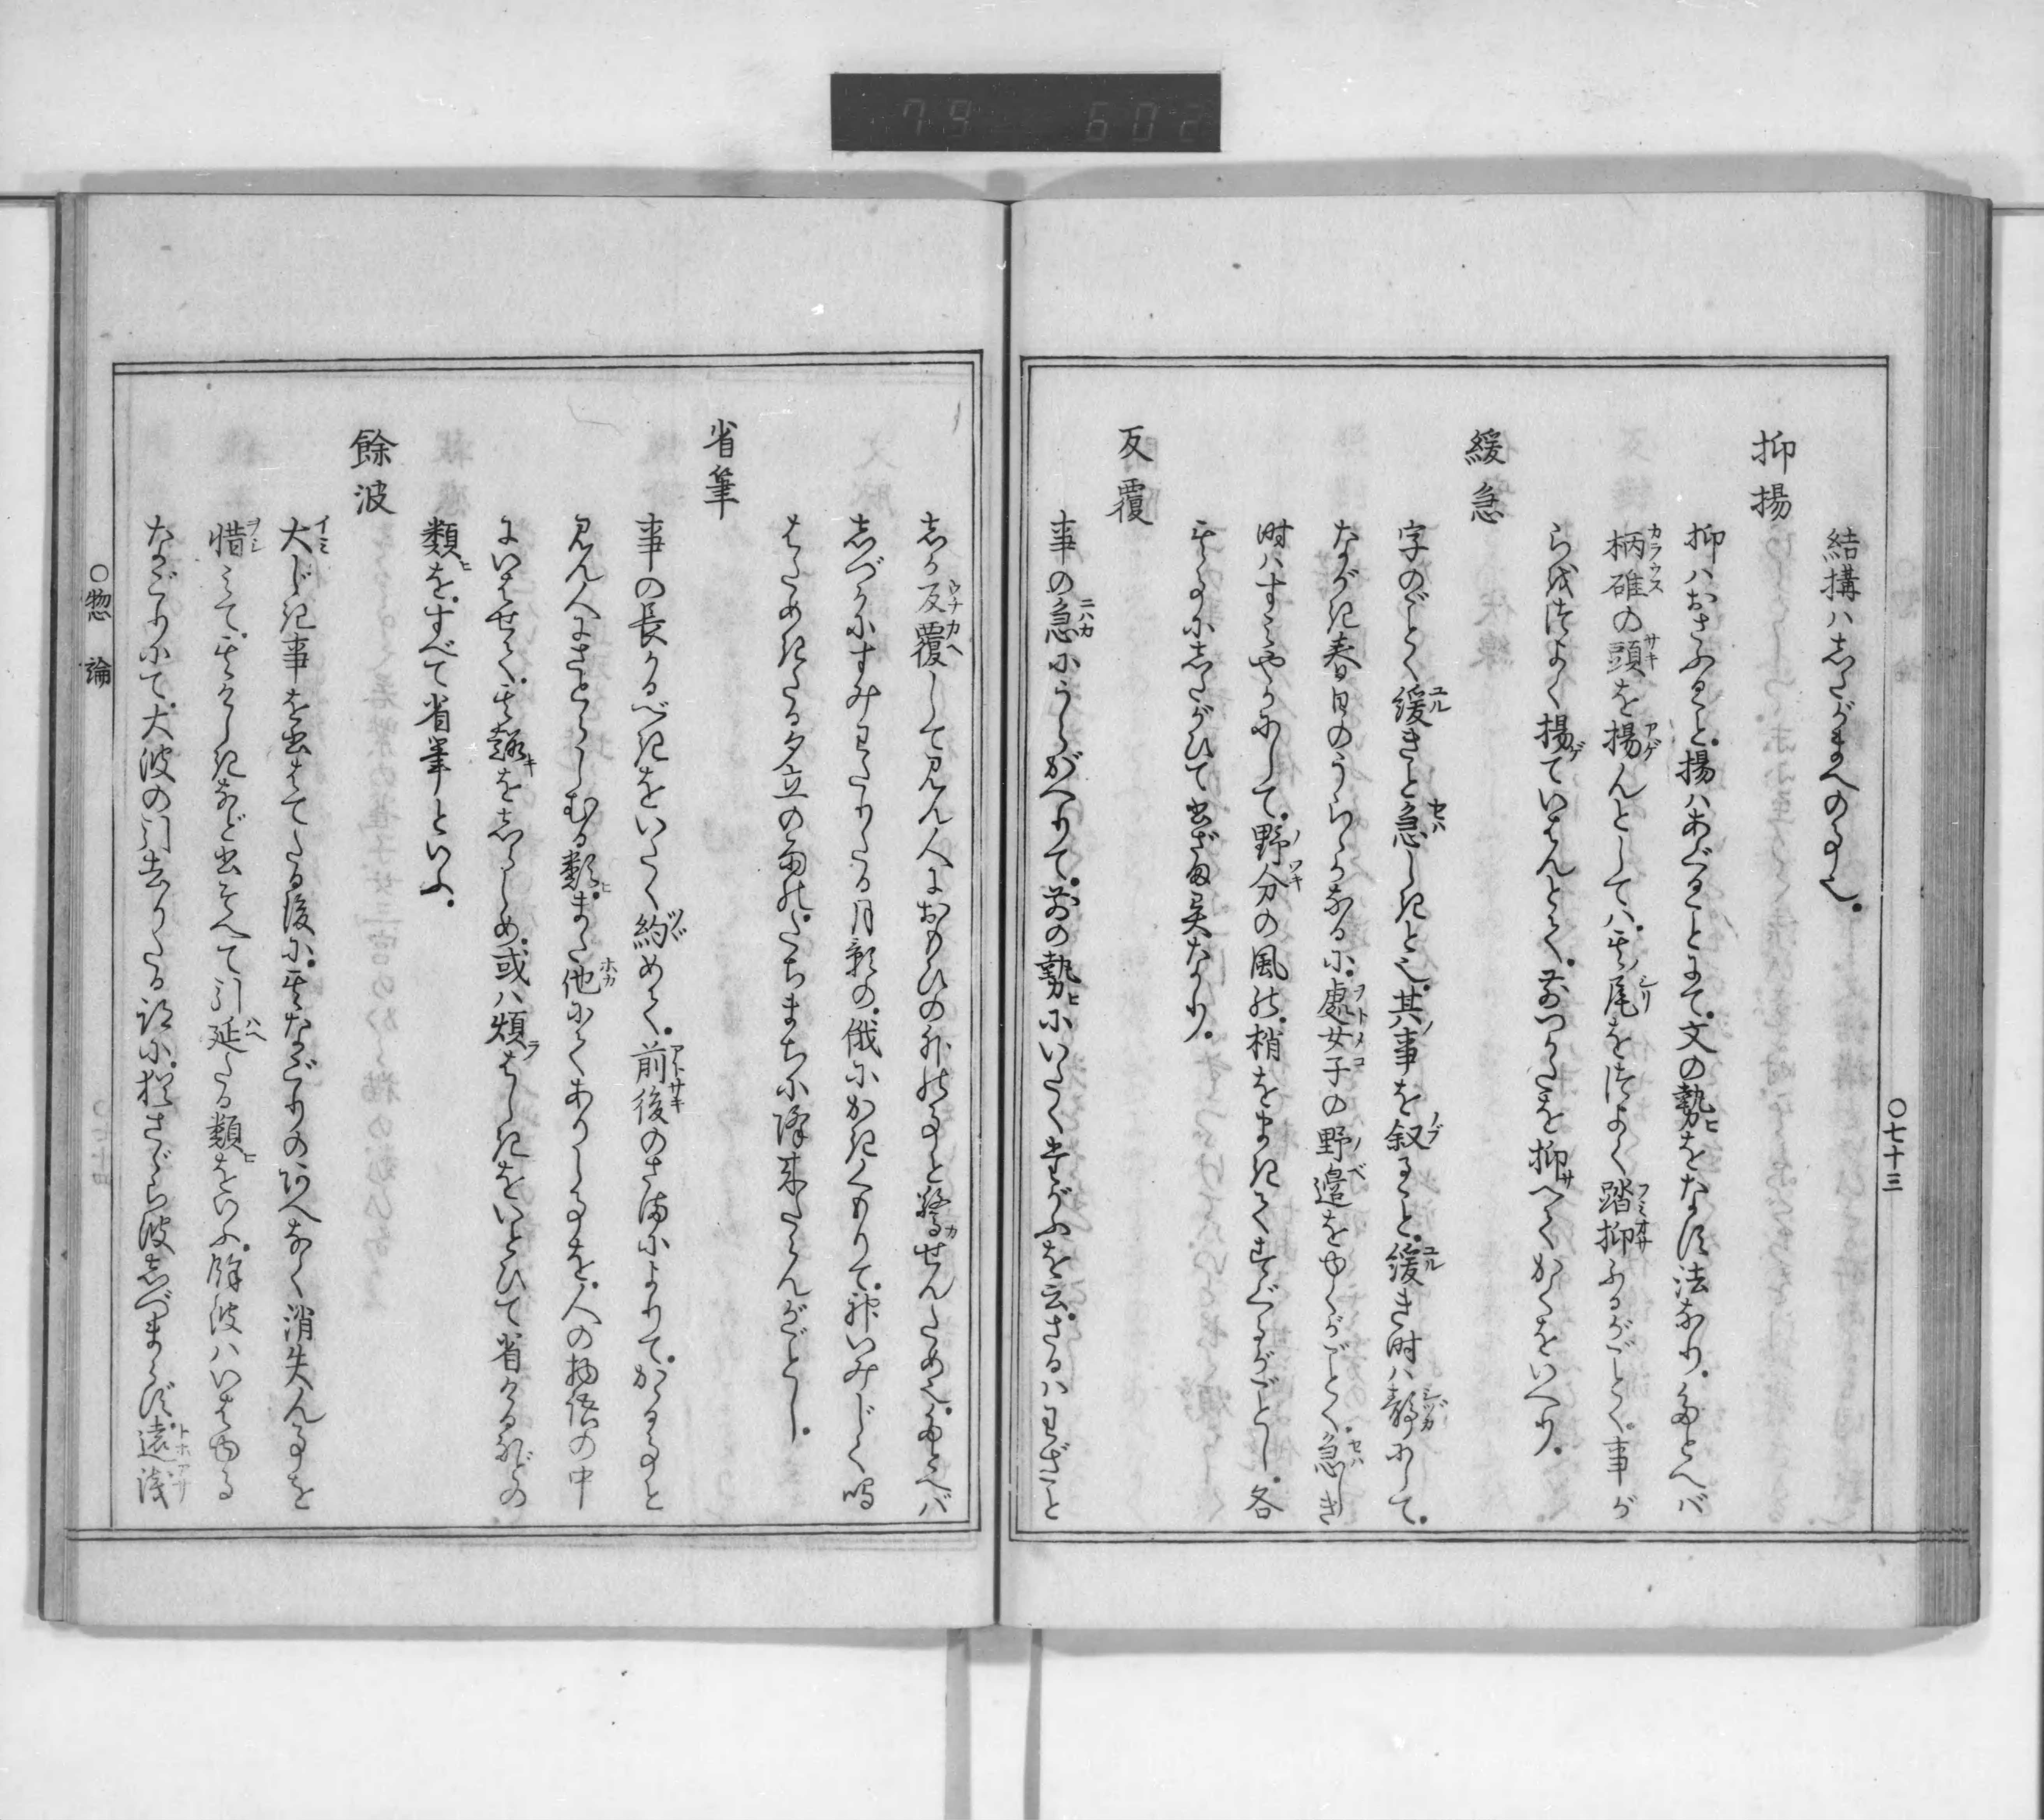 79 602
〇七十三
結構ハしたがまへの事也。
抑揚
抑ハおさふると。揚ハあぐるとにて。文の勢をなす法なり。たとへバ
柄碓の頭を揚んとしてハ。其尾をつよく踏抑ふるがごとく。事が
らをつよく揚ていはんとて。前つかたを抑へてかくをいへり。
緩急
字のごとく緩きと急しきと也。其事を叙ると。緩き時ハ静にして。
ながき春日のうらゝかなるに。處女子の野邉をゆくがごとく。急しき
時ハすみやかにして。野分の風の。梢をまきてすぐるがごとし。各
其事にしたがひて書ざま異なり。
反覆
事の急にうらがへりて。前の勢にいたくたがふを云。さるハわざと
しか反覆して見ん人におもひの外の事と驚せんため也。たとへバ
しづかにすみわたりたる月影の。俄にかきくもりて。神いみじく鳴
はためきたる夕立の雨の。たちまちに降来たらんがごとし。
省筆
事の長かるべきをいたく約めて。前後のさまによりて。かゝる事と
見ん人にさとらしむる類。また他にてありし事を。人の物語の中
にいはせて。其趣をしらしめ。或ハ煩はしきをいとひて省けるなどの
類を。すべて省筆といふ。
餘波
大じき事を書はてたる後に。其なごりのあへなく消失ん事を
惜みて。其けしきなど書そへて引延たる類をいふ。餘波ハいはゆる
なごりにて。大波の引去りたる跡に。猶さゞら波しづまらず。遠浅
〇惣論